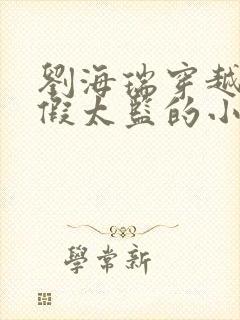 劉海瑞穿越
假太監的小
學常新